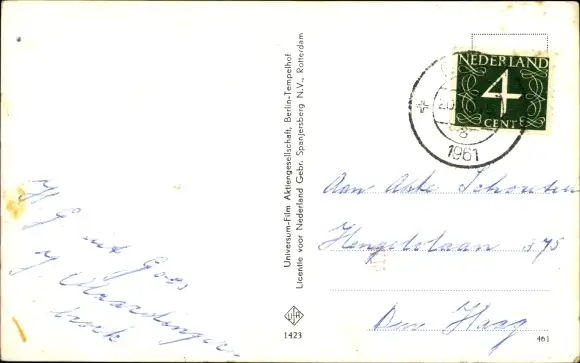 NEDERLAND
4
CENT
1961
Universum-Film Aktiengesellschaft, Berlin-Tempelhof
Licentie voor Nederland Gebr. Spanjersberg N.V., Rotterdam
Aan Schouten
Hengelolaan 375
Den Haag
H G uit Goes
Vlaardinger
broek
UFA
1423
461